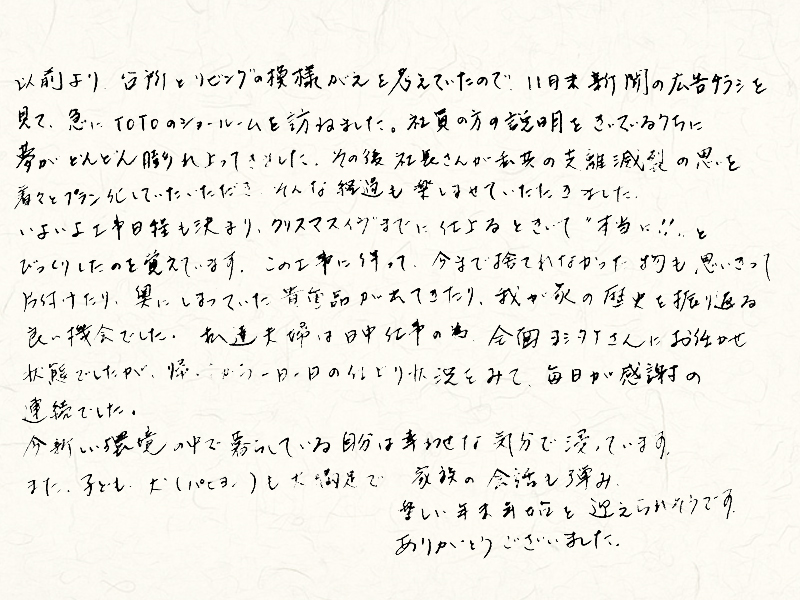 以前より、台所とリビングの模様がえを考えていたので、11月末新聞の広告チラシを
見て、急にTOTOのショールームを訪ねました。社員の方の説明をきいているうちに
夢がどんどん膨れ上ってきました。その後社長さんが私共の支離滅裂の思いを
着々とプラン化していただき、そんな経過も楽しませていただきました。
いよいよ工事日程も決まり、クリスマスイヴまでに仕上るときいて“本当に!!”と
びっくりしたのを覚えています。この工事に伴って、今まで捨てれなかった物も思いきって
片付けたり、奥にしまっていた貴重品が出てきたり、我が家の歴史を振り返る
良い機会でした。私達夫婦は日中仕事の為、全面ヨシタケさんにお任せ
状態でしたが、帰ってから一日一日の仕上り状況をみて、毎日が感謝の
連続でした。
今新しい環境の中で暮らしている自分は幸わせな気分で浸っています。
また、子ども、犬(パピヨン)も大満足で 家族の会話も弾み、
楽しい年末年始を迎えられそうです。
ありがとうございました。